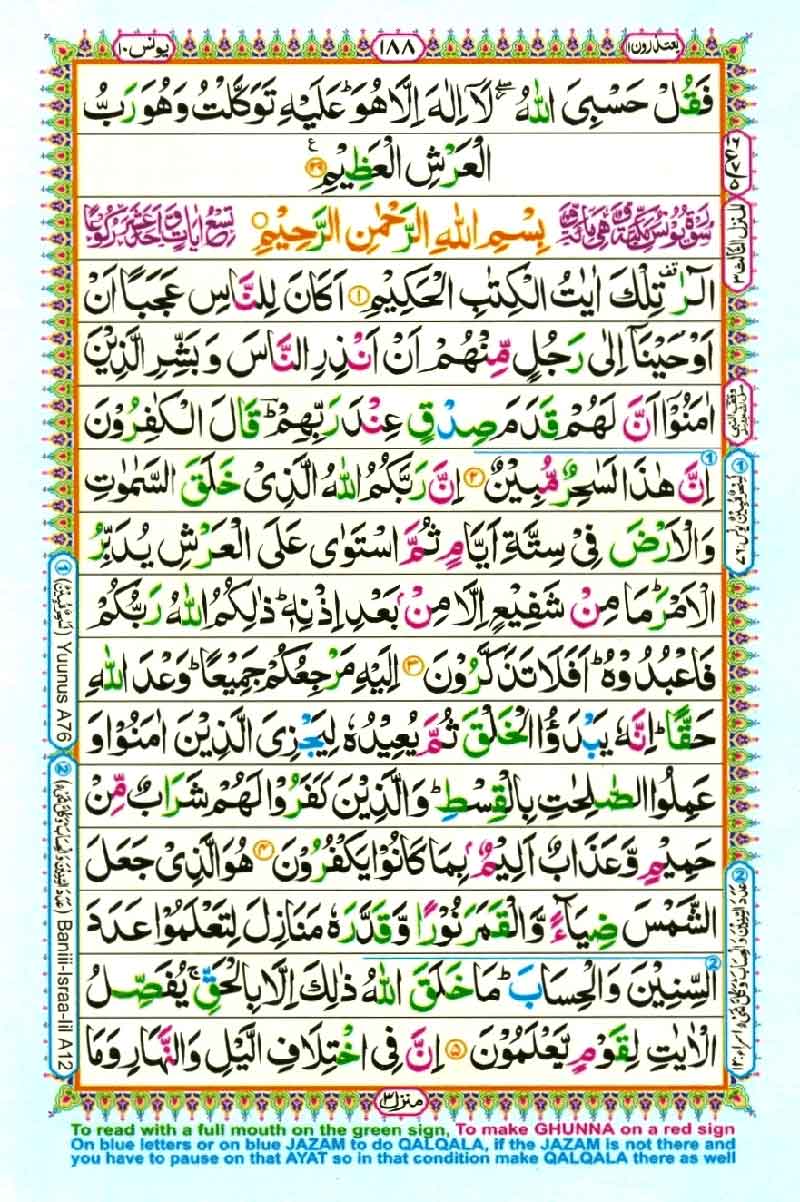 يعتذرون ١١
١٨٨
يونس ١٠
فَقُلْ حَسْبِيَ اللهُ ۖ لَآ اِلٰهَ اِلَّا هُوَ ؕ عَلَيْهِ تَوَكَّلْتُ وَهُوَ رَبُّ
الْعَرْشِ الْعَظِيْمِ ﴿۱۲۹﴾
بِسْمِ اللهِ الرَّحْمٰنِ الرَّحِيْمِ ○
الٓرٰ ۫ تِلْكَ اٰيٰتُ الْكِتٰبِ الْحَكِيْمِ ﴿۱﴾ اَكَانَ لِلنَّاسِ عَجَبًا اَنْ
اَوْحَيْنَاۤ اِلٰى رَجُلٍ مِّنْهُمْ اَنْ اَنْذِرِ النَّاسَ وَبَشِّرِ الَّذِيْنَ
اٰمَنُوْۤا اَنَّ لَهُمْ قَدَمَ صِدْقٍ عِنْدَ رَبِّهِمْ ؕ قَالَ الْكٰفِرُوْنَ
اِنَّ هٰذَا لَسٰحِرٌ مُّبِيْنٌ ﴿۲﴾ اِنَّ رَبَّكُمُ اللهُ الَّذِيْ خَلَقَ السَّمٰوٰتِ
وَالْاَرْضَ فِيْ سِتَّةِ اَيَّامٍ ثُمَّ اسْتَوٰى عَلَى الْعَرْشِ يُدَبِّرُ
الْاَمْرَ ؕ مَا مِنْ شَفِيْعٍ اِلَّا مِنْۢ بَعْدِ اِذْنِهٖ ؕ ذٰلِكُمُ اللهُ رَبُّكُمْ
فَاعْبُدُوْهُ ؕ اَفَلَا تَذَكَّرُوْنَ ﴿۳﴾ اِلَيْهِ مَرْجِعُكُمْ جَمِيْعًا ؕ وَعْدَ اللهِ
حَقًّا ؕ اِنَّهٗ يَبْدَؤُا الْخَلْقَ ثُمَّ يُعِيْدُهٗ لِيَجْزِيَ الَّذِيْنَ اٰمَنُوْا وَ
عَمِلُوا الصّٰلِحٰتِ بِالْقِسْطِ ؕ وَالَّذِيْنَ كَفَرُوْا لَهُمْ شَرَابٌ مِّنْ
حَمِيْمٍ وَّعَذَابٌ اَلِيْمٌۢ بِمَا كَانُوْا يَكْفُرُوْنَ ﴿۴﴾ هُوَ الَّذِيْ جَعَلَ
الشَّمْسَ ضِيَآءً وَّالْقَمَرَ نُوْرًا وَّقَدَّرَهٗ مَنَازِلَ لِتَعْلَمُوْا عَدَدَ
السِّنِيْنَ وَالْحِسَابَ ؕ مَا خَلَقَ اللهُ ذٰلِكَ اِلَّا بِالْحَقِّ ۚ يُفَصِّلُ
الْاٰيٰتِ لِقَوْمٍ يَّعْلَمُوْنَ ﴿۵﴾ اِنَّ فِي اخْتِلَافِ الَّيْلِ وَالنَّهَارِ وَمَا
المنزل الثالث ٣
① Yuunus A76
② Baniii-Israa-Iil A12
منزل ٣
To read with a full mouth on the green sign, To make GHUNNA on a red sign
On blue letters or on blue JAZAM to do QALQALA, if the JAZAM is not there and
you have to pause on that AYAT so in that condition make QALQALA there as well